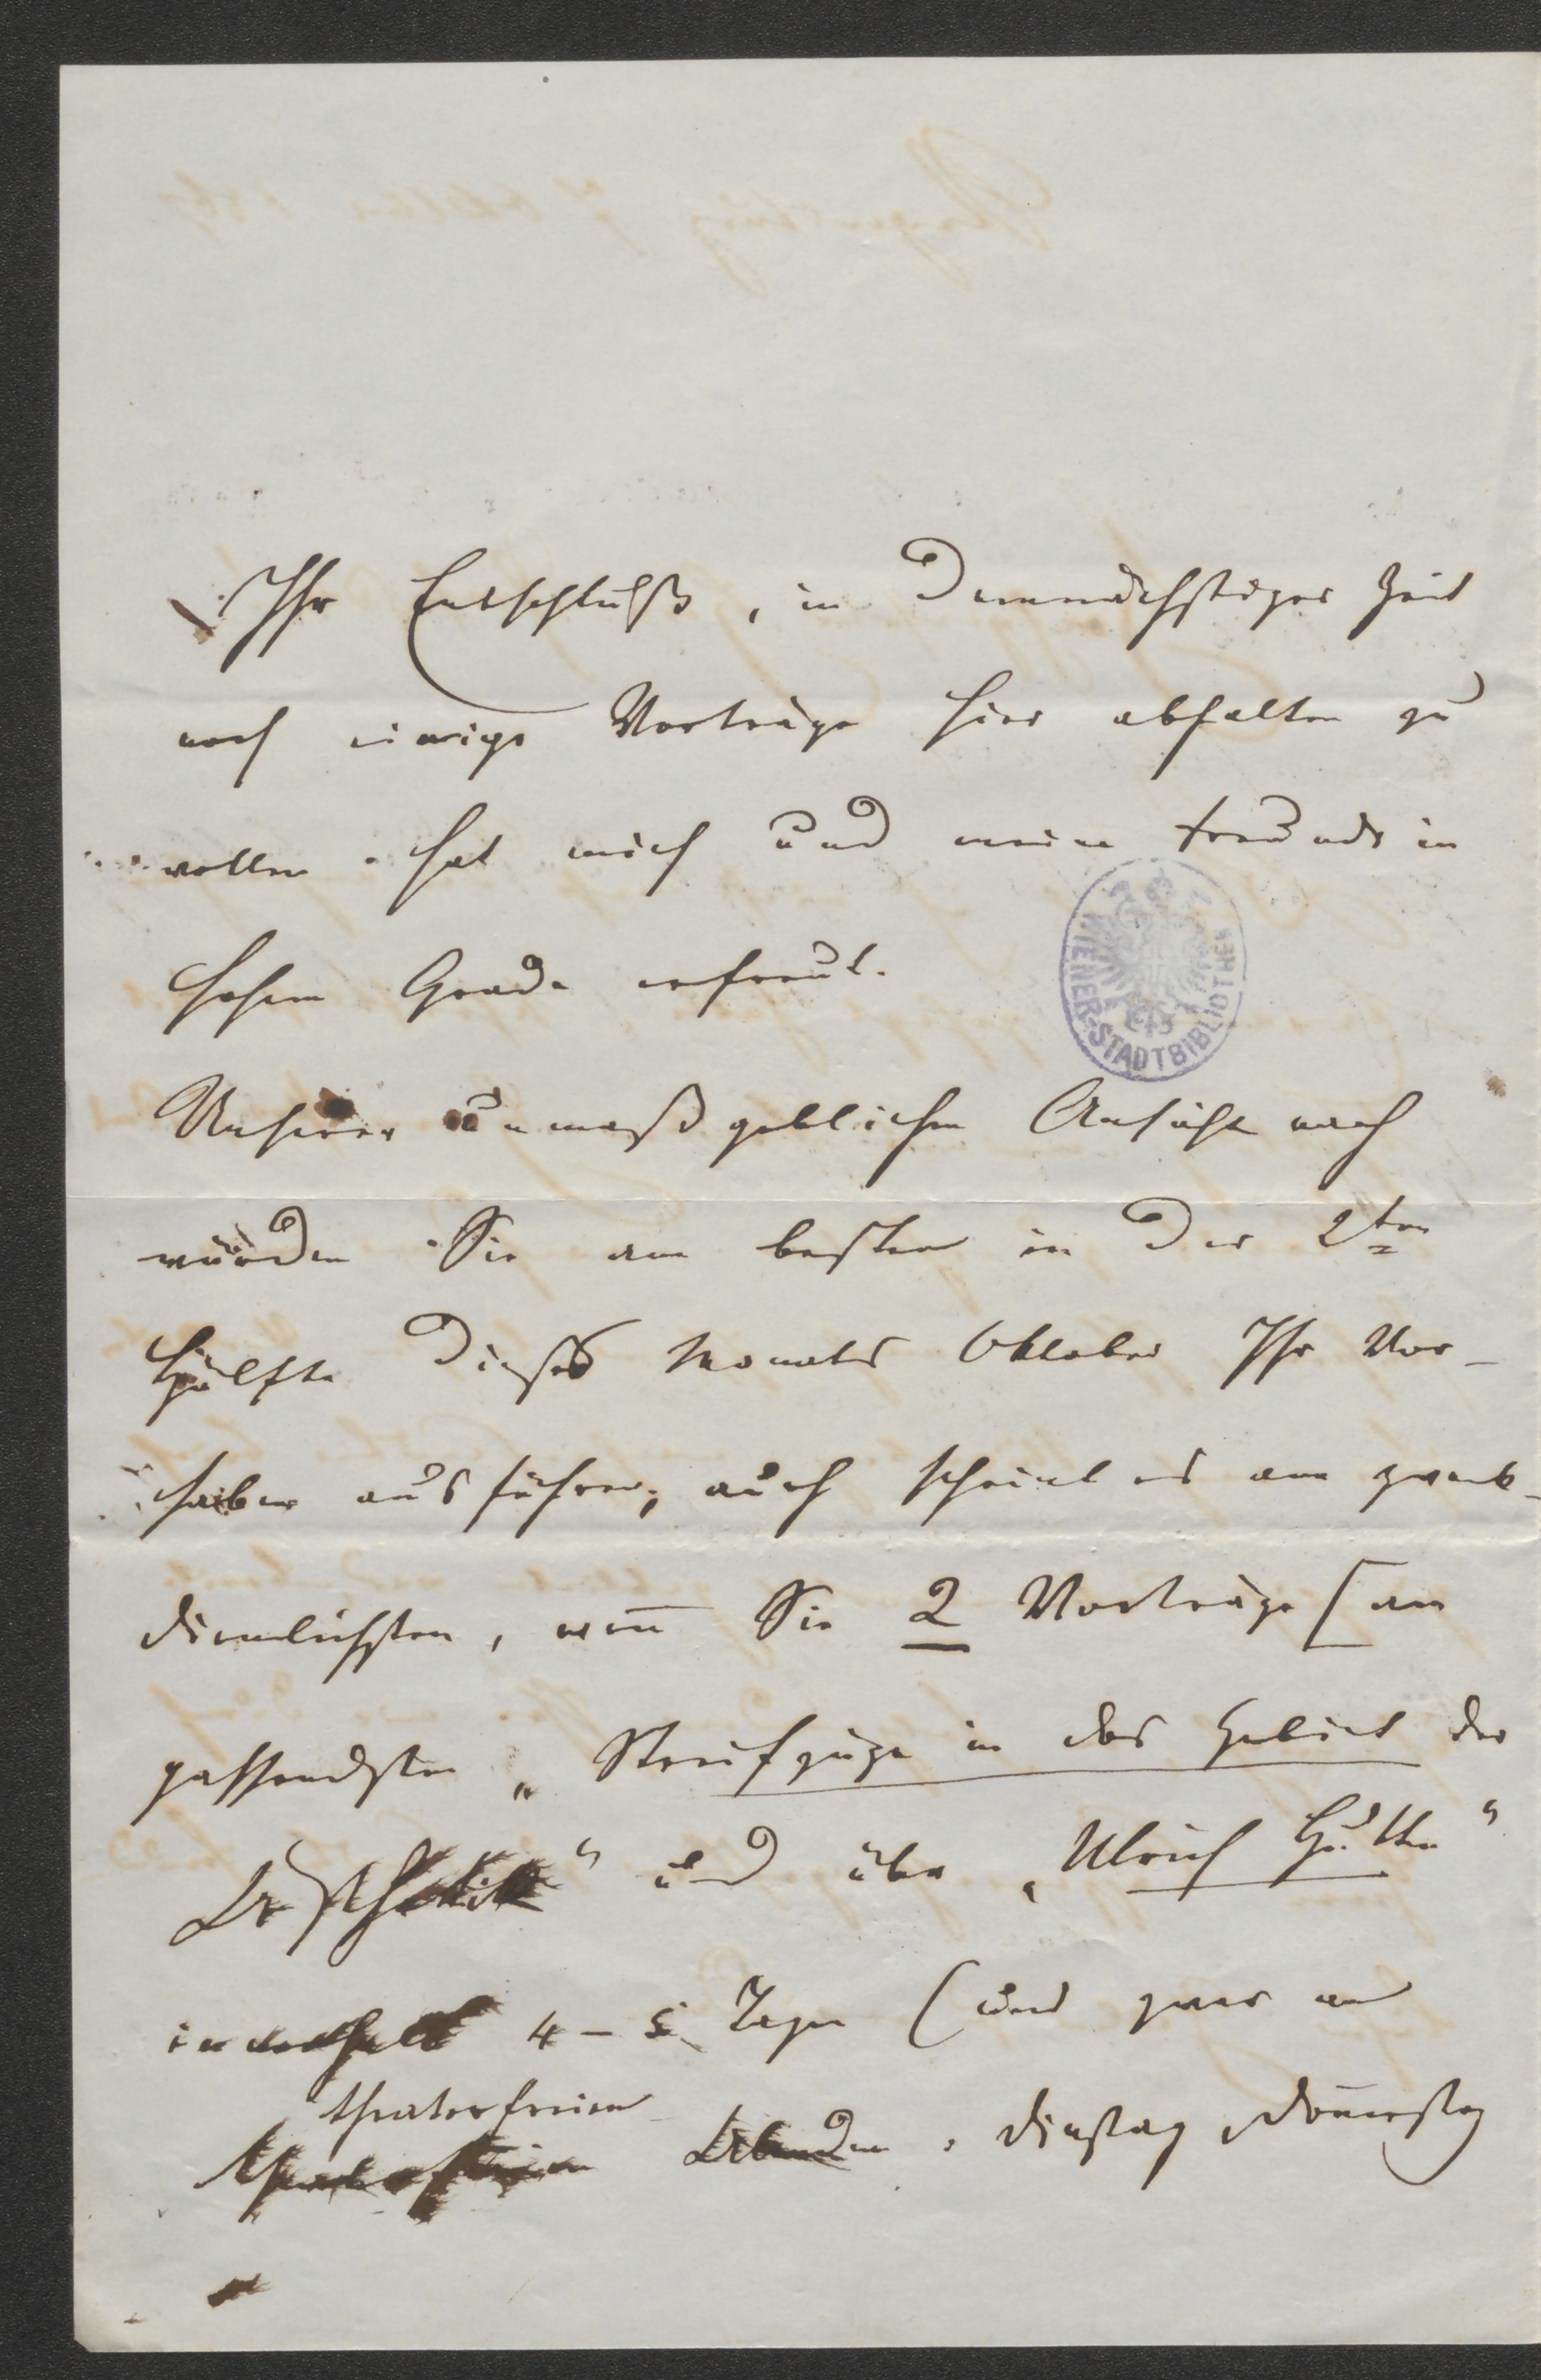 Ihr Entschluß, in demnächstiger Zeit
noch einige Vorträge hier abhalten zu
wollen hat mich und meine Freunde in
hohem Grade erfreut.
WIENER-STADTBIBLIOTHEK
Unserer unmaßgeblichen Ansicht nach
würden Sie am besten in der 2ten
Hälfte dieses Monats Oktober Ihr Vor-
haben ausführen; auch scheint es am zweck-
dienlichsten, wenn Sie 2 Vorträge (am
passendsten „Streifzüge in das Gebiet der
Aesthetik“ und über „Ulrich Hutten“
innerhalb 4-5 Tagen (und zwar an
theaterfreien
theaterfreien Abenden, Dienstag Donnerstag